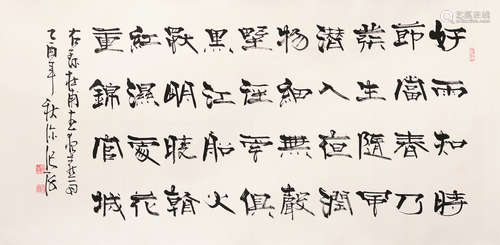 好雨知時
節當春乃
發生隨風
潛入夜潤
物細無聲
野徑雲俱
黑江船火
獨明曉看
紅濕處花
重錦官城
右錄杜甫春夜喜雨
乙酉年秋深